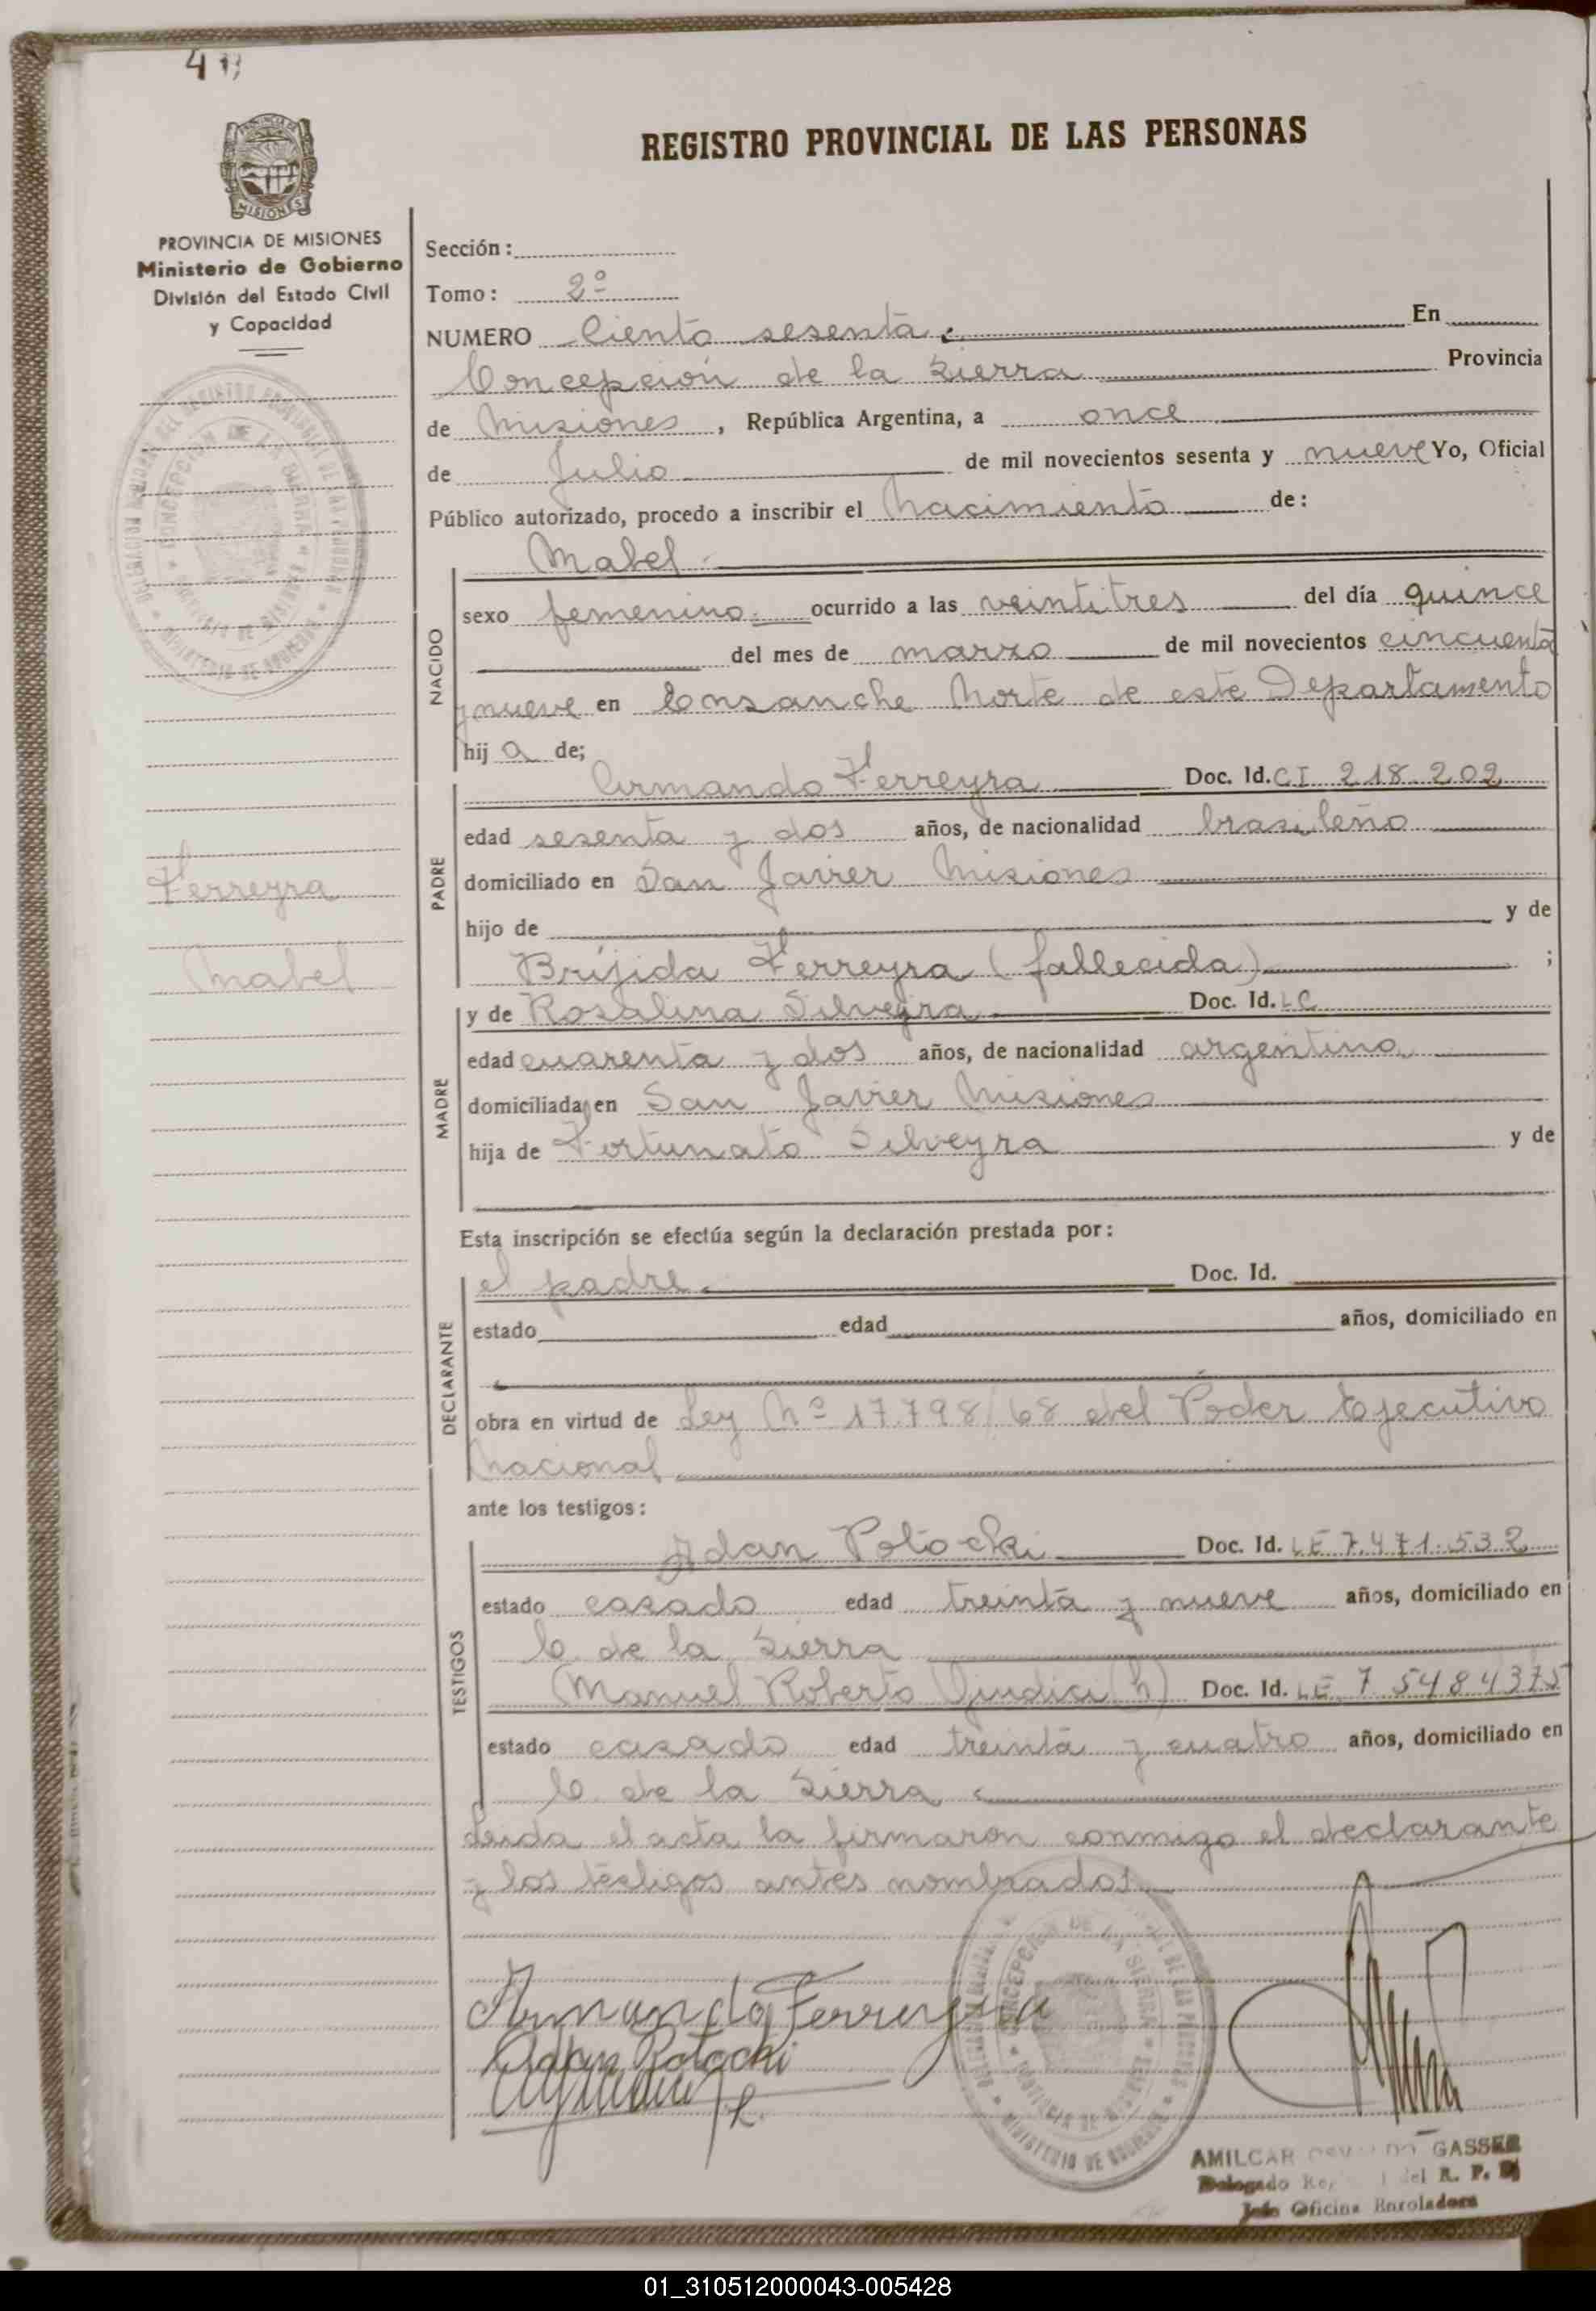 REGISTRO PROVINCIAL DE LAS PERSONAS
MISIONES
PROVINCIA DE MISIONES
Ministerio de Gobierno
División del Estado Civil
y Capacidad
Ferreyra
Mabel
Sección:
Tomo: 2º
NUMERO Ciento sesenta. En
Concepción de la Sierra Provincia
de Misiones, República Argentina, a once
de Julio de mil novecientos sesenta y nueve Yo, Oficial
Público autorizado, procedo a inscribir el Nacimiento de:
NACIDO
Mabel
sexo femenino. ocurrido a las veintitres del día quince
del mes de marzo de mil novecientos cincuenta
y nueve en Ensanche Norte de este Departamento
hij a de;
PADRE
Armando Ferreyra Doc. Id. CI 218.202
edad sesenta y dos años, de nacionalidad brasileño
domiciliado en San Javier Misiones
hijo de y de
Bríjida Ferreyra (fallecida) ;
MADRE
y de Rosalina Silveyra Doc. Id. LC
edad cuarenta y dos años, de nacionalidad argentina
domiciliada en San Javier Misiones
hija de Fortunato Silveyra y de
Esta inscripción se efectúa según la declaración prestada por:
DECLARANTE
el padre. Doc. Id.
estado edad años, domiciliado en
obra en virtud de Ley Nº 17.798/68 del Poder Ejecutivo
Nacional
ante los testigos:
TESTIGOS
Adan Potocki Doc. Id. LE 7.471.532
estado casado edad treinta y nueve años, domiciliado en
C de la Sierra
Manuel Roberto Giudici (h) Doc. Id. LE 7 5484375
estado casado edad treinta y cuatro años, domiciliado en
C. de la Sierra
Leida el acta la firmaron conmigo el declarante
y los testigos antes nombrados.
Armando Ferreyra
Adan Potocki
AMILCAR GASSER
Delegado del R. P.
Jefe Oficina Enroladora
01_310512000043-005428